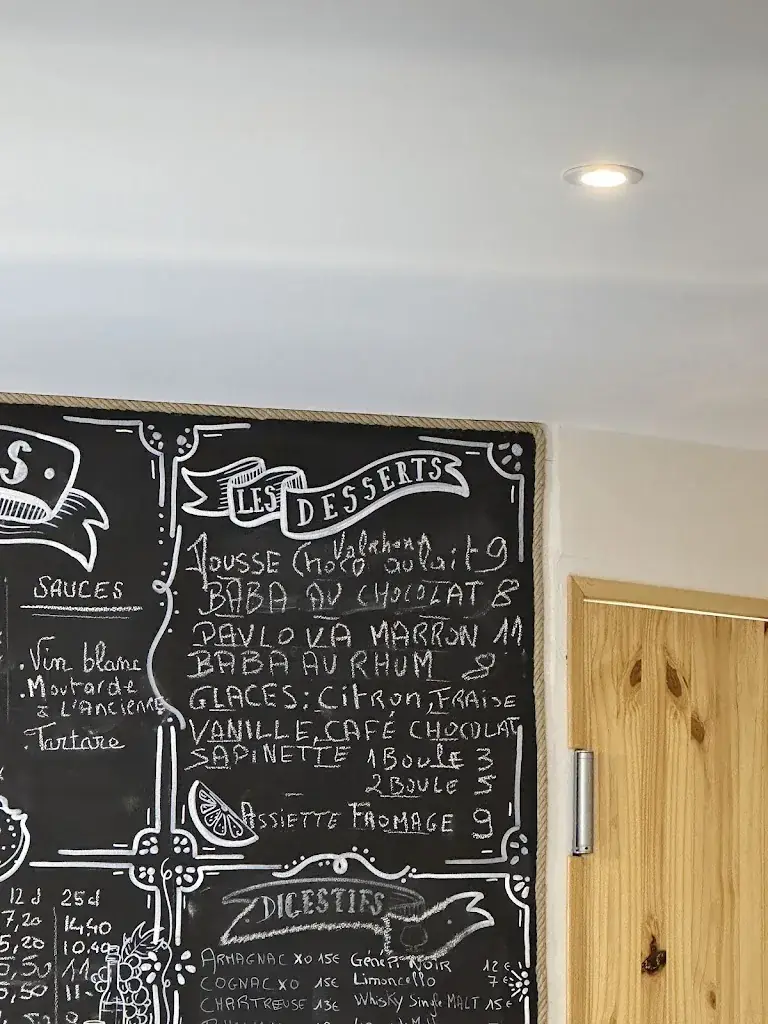 S.
SAUCES
. Vin blanc
. Moutarde
à L'Ancienne
. Tartare
12 cl 25 cl
7,20 14,40
5,20 10.40
5,50 11
5,50 11.
LES DESSERTS
MOUSSE Choco Valrhona au lait 9
BABA AU CHOCOLAT 8
PAVLOVA MARRON 11
BABA AU RHUM 8
GLACES: Citron, FRAISE
VANILLE, CAFÉ CHOCOLAT
SAPINETTE 1 BOULE 3
2 BOULE 5
ASSIETTE FROMAGE 9
DIGESTIFS
ARMAGNAC XO 15€
COGNAC XO 15€
CHARTREUSE 13€
NOIR 12€
Limoncello 7€
Whisky Single MALT 15€